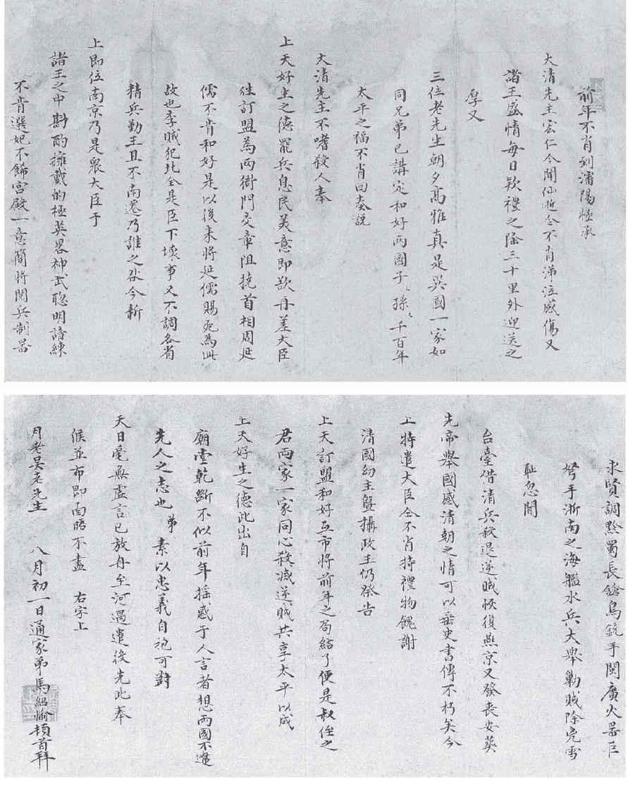 前年不肖到瀋陽極承
大清先主宏仁今聞仙逝令不肖涕泣感傷又
諸王盛情每日欵禮之隆三十里外迎送之
厚又
三位老先生朝夕高雅真是異國一家如
同兄弟已講定和好兩國子〻孫〻千百年
太平之福不肖回奏說
大清先主不嗜殺人奉
上天好生之德罷兵息民美意即欲再差大臣
徃訂盟為兩衙門交章阻撓首相周延
儒不肯和好是以後來將延儒賜死為此
故也李賊犯北全是臣下壞事又不調各省
精兵勤王且不南遷乃誰之咎今新
上即位南京乃是衆大臣于
諸王之中斟酌擁戴的極英畧神武聰明諳練
不肯選妃不餙宮殿一意簡將閱兵制器
求賢調黔蜀長鎗鳥銃手閩廣火器巨
砮手浙南之海艦水兵大舉勦賊除兇雪
恥忽聞
台臺借清兵殺退逆賊恢復燕京又發喪安葬
先帝舉國感清朝之情可以垂史書傳不朽矣今
上特遣大臣仝不肖持禮物餽謝
清國幼主暨攝政王仍發告
上天訂盟和好互市將前年之局結了便是叔侄之
君兩家一家同心殺滅逆賊共享太平以成
上天好生之德此出自
廟堂乾斷不似前年搖惑于人言者想兩國不違
先人之志也弟素以忠義自砲可對
天日毫無虛言已放舟至河邊遣役先此奉
候並布即面晤不盡 右字上
月老吳老先生 八月初一日通家弟馬紹愉頓首拜